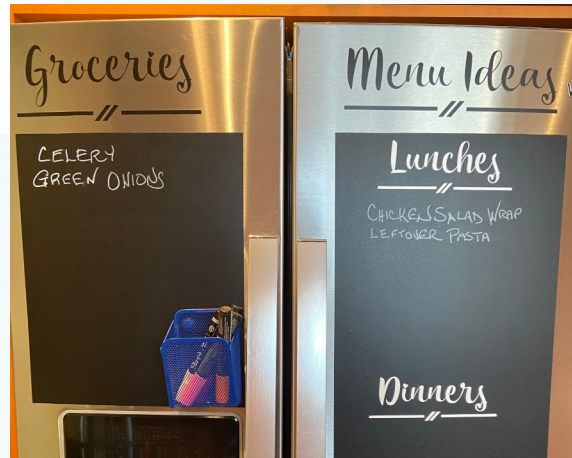 Groceries
CELERY
GREEN ONIONS
Menu Ideas
Lunches
CHICKEN SALAD WRAP
LEFTOVER PASTA
Dinners